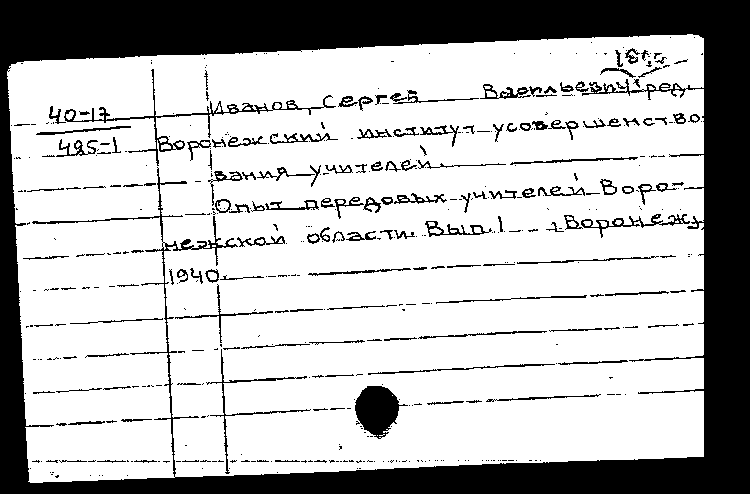 40-17
495-1
Иванов, Сергей Васильевич ред.
Воронежский институт усовершенство-
вания учителей.
Опыт передовых учителей Воро-
нежской области. Вып. 1 , Воронеж,
1940.